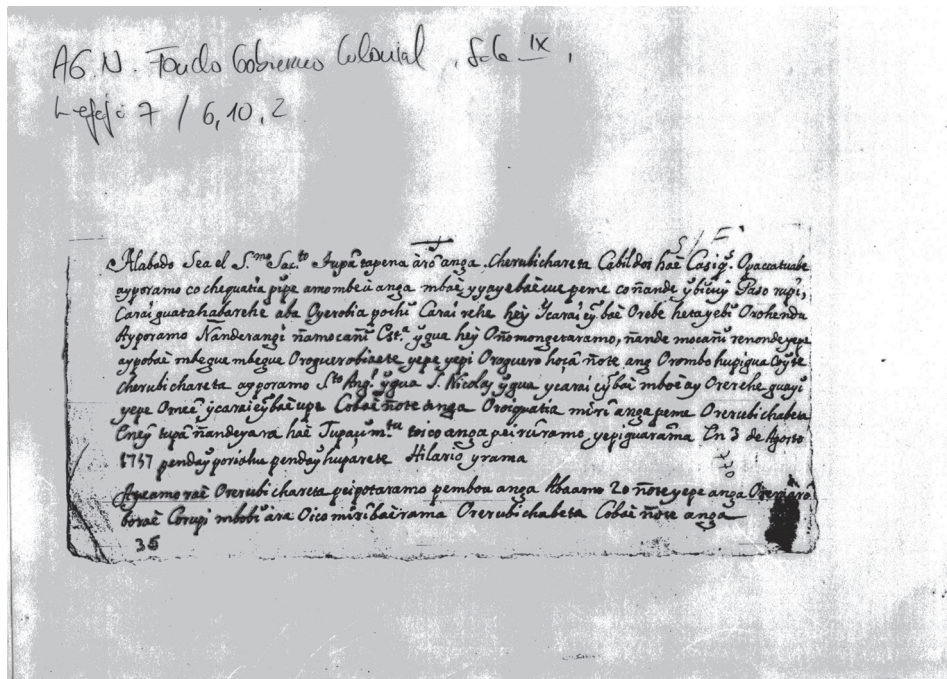 AG.N. Fondo Gobierno Colonial, Sala IX,
Legajo 7 / 6,10,2
Alabado Sea el S.mo Sac.to Tupâ tapena àrõ anga cherubichareta Cabildos haè Casiq.s Opaccatuabe
ayporamo co chequatia pipe amombeù anga mbaè yyayebaè peme co ñande Paso rupi,
Carai guatahabarehe aba Oyerobia pochî Carai rehe heỹ Ycarai eỹbaè Orebe hetayebi Orohendu
Ayporamo Ñanderangi ñamocañî Cst.a ỹgua heỹ Oñomongetaramo, ñande mocañi renondeyepe
aypobaè mbegue mbegue Oroguerobiaete yepe yepi Oroguero horâ ñote ang Orombo hupigua
cherubichareta ayporamo S.to Ang.l ỹgua S. Nicolas ỹgua ycarai eỹbaè mboè Orerehe
yepe Omeê ỹcarai eỹbaè upe Cobaè ñote anga Oroiquatia mirî anga peme Orerubichabeta
Eneỹ tupâ ñandeyara haè Tupaỹ m.tu toico anga peirûramo yepiguarâma En 3 de Agosto
1757 pendaỹ poriahu pendaỹ huparete Hilario yrama
Ayeamo raè Orerubichareta peipotaramo pembou anga Abaamo 20 ñote yepe anga
boraè Corupi mbobĩ ara Oico mirî baèrama Orerubichabeta Cobaè ñote anga
36